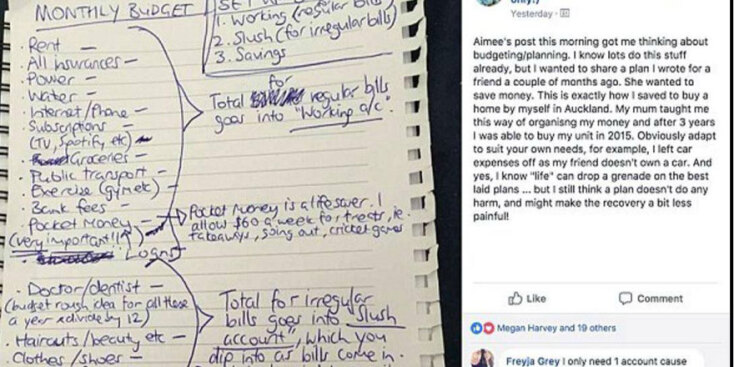 MONTHLY BUDGET
1. Working (regular bills)
2. Slush (for irregular bills)
3. Savings
· Rent —
· All insurances —
· Power —
· Water —
· Internet/Phone —
· Subscriptions —
(TV, Spotify, etc)
Groceries —
· Public transport —
· Exercise (gym etc) —
· Bank fees —
· Pocket Money —
(very important!!)
Loans
Total for regular bills
goes into "Working a/c".
Pocket money is a lifesaver. I
allow $60 a week for treats, ie.
takeaways, going out, cricket games
· Doctor/dentist —
(budget rough idea for all these
a year & divide by 12)
· Haircuts/beauty etc —
· Clothes/shoes —
Total for irregular
bills goes into "Slush
account", which you
dip into as bills come in.
Yesterday ·
Aimee's post this morning got me thinking about
budgeting/planning. I know lots do this stuff
already, but I wanted to share a plan I wrote for a
friend a couple of months ago. She wanted to
save money. This is exactly how I saved to buy a
home by myself in Auckland. My mum taught me
this way of organisng my money and after 3 years
I was able to buy my unit in 2015. Obviously adapt
to suit your own needs, for example, I left car
expenses off as my friend doesn't own a car. And
yes, I know "life" can drop a grenade on the best
laid plans ... but I still think a plan doesn't do any
harm, and might make the recovery a bit less
painful!
Like
Comment
Megan Harvey and 19 others
Freyja Grey I only need 1 account cause